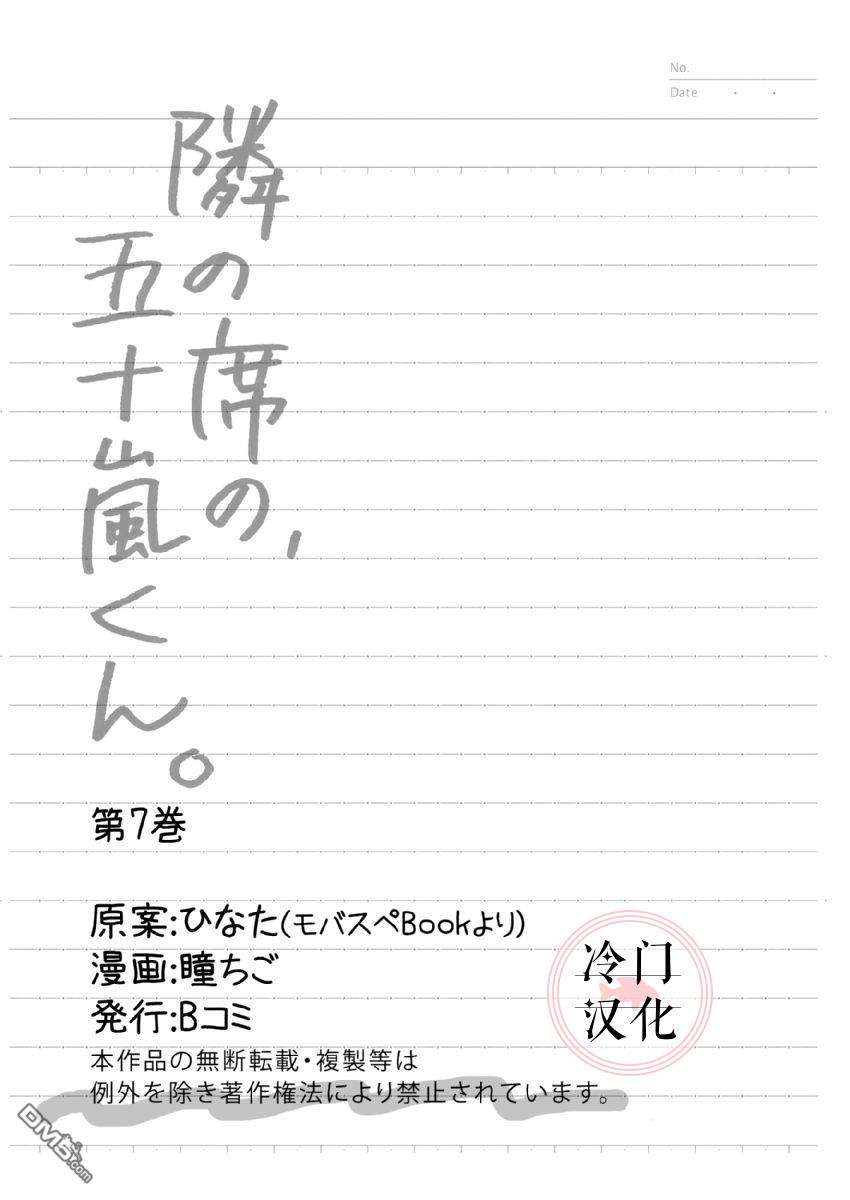 No.
Date
隣の席の、
五十嵐くん。
第7巻
原案:ひなた(モバスペBookより)
漫画:瞳ちご
発行:Bコミ
本作品の無断転載・複製等は
例外を除き著作権法により禁止されています。
冷门
汉化
DM5.com